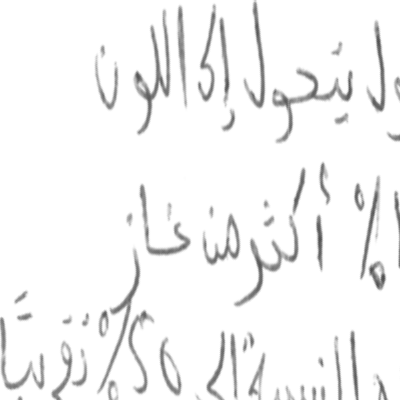 يتحول إلى اللون
% أكثر من غاز
النسبة إلى 50% تقريبًا